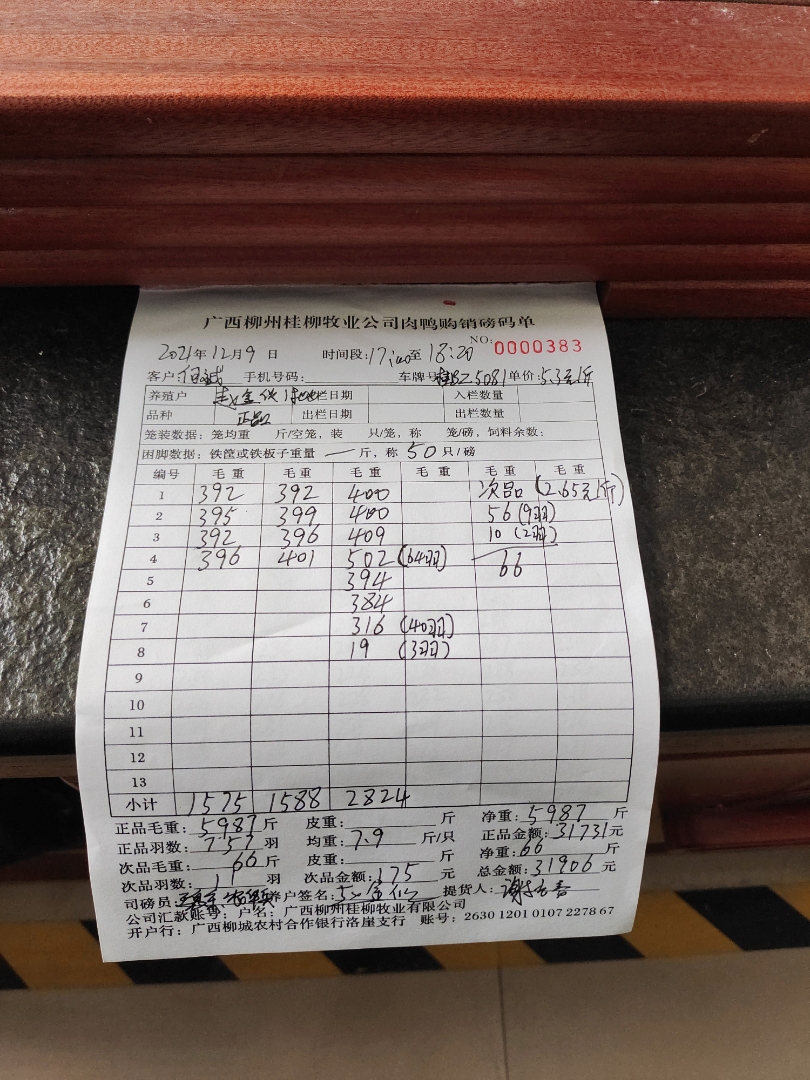 广西柳州桂柳牧业公司肉鸭购销磅码单
NO: 0000383
2021年12月9日 时间段:17:00至18:20
客户: 手机号码: 车牌号 桂BZ5081 单价:5.3元/斤
养殖户 入栏日期 入栏数量
品种 正品 出栏日期 出栏数量
笼装数据: 笼均重 斤/空笼, 装 只/笼, 称 笼/磅, 饲料余数:
困脚数据: 铁筐或铁板子重量 一 斤, 称 50 只/磅
编号 毛重 毛重 毛重 毛重 毛重 毛重
1 392 392 400 次品 (2.65元/斤)
2 395 399 400 56 (9羽)
3 392 396 409 10 (2羽)
4 396 401 502 (64羽) 66
5 394
6 384
7 316 (40羽)
8 19 (3羽)
9
10
11
12
13
小计 1575 1588 2824
正品毛重: 5987斤 皮重: 斤 净重: 5987 斤
正品羽数: 757羽 均重: 7.9 斤/只 正品金额: 31731元
次品毛重: 66斤 皮重: 斤 净重: 66 斤
次品羽数: 11羽 次品金额: 175 元 总金额: 31906元
司磅员: 养户签名: 提货人:
公司汇款账号: 户名: 广西柳州桂柳牧业有限公司
开户行: 广西柳城农村合作银行洛崖支行 账号: 2630 1201 0107 2278 67